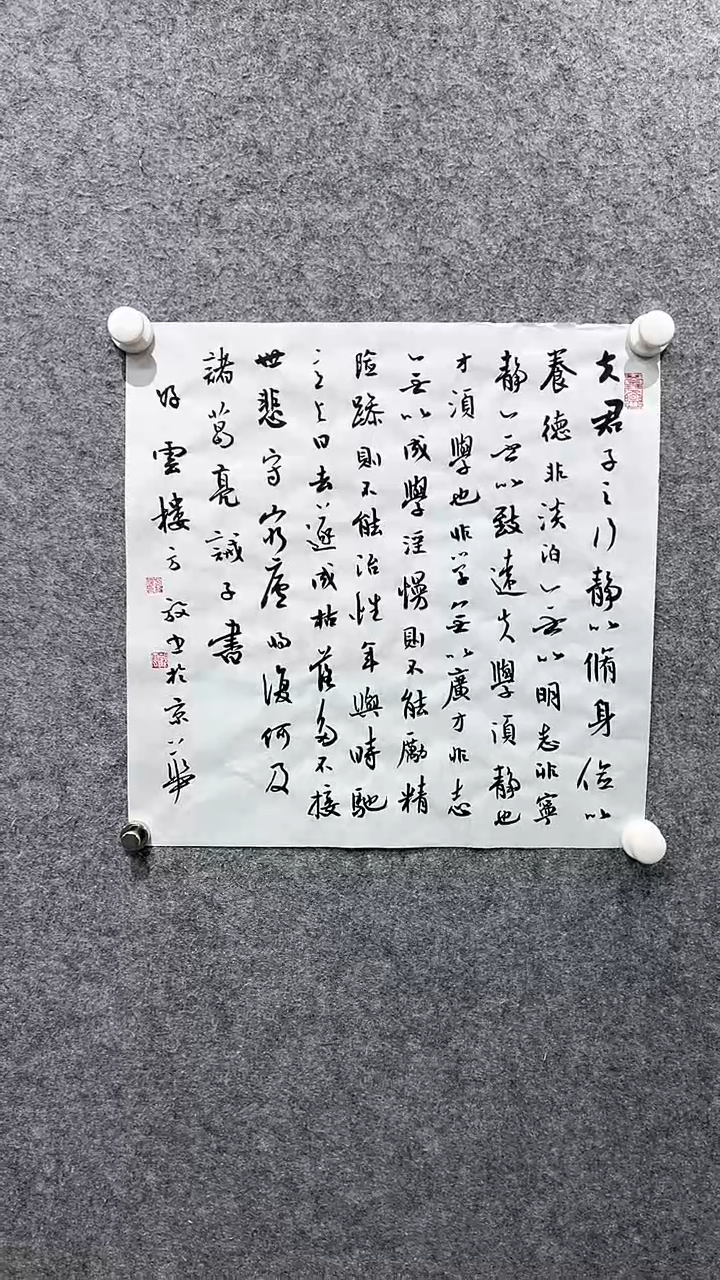 夫君子之行靜以脩身儉以
養德非淡泊無以明志非寧
靜無以致遠夫學須靜也
才須學也非学無以廣才非志
無以成學淫慢則不能勵精
險躁則不能治性年與時馳
意与日去遂成枯落多不接
世悲守窮廬將復何及
諸葛亮誡子書
雲樓方书於京華